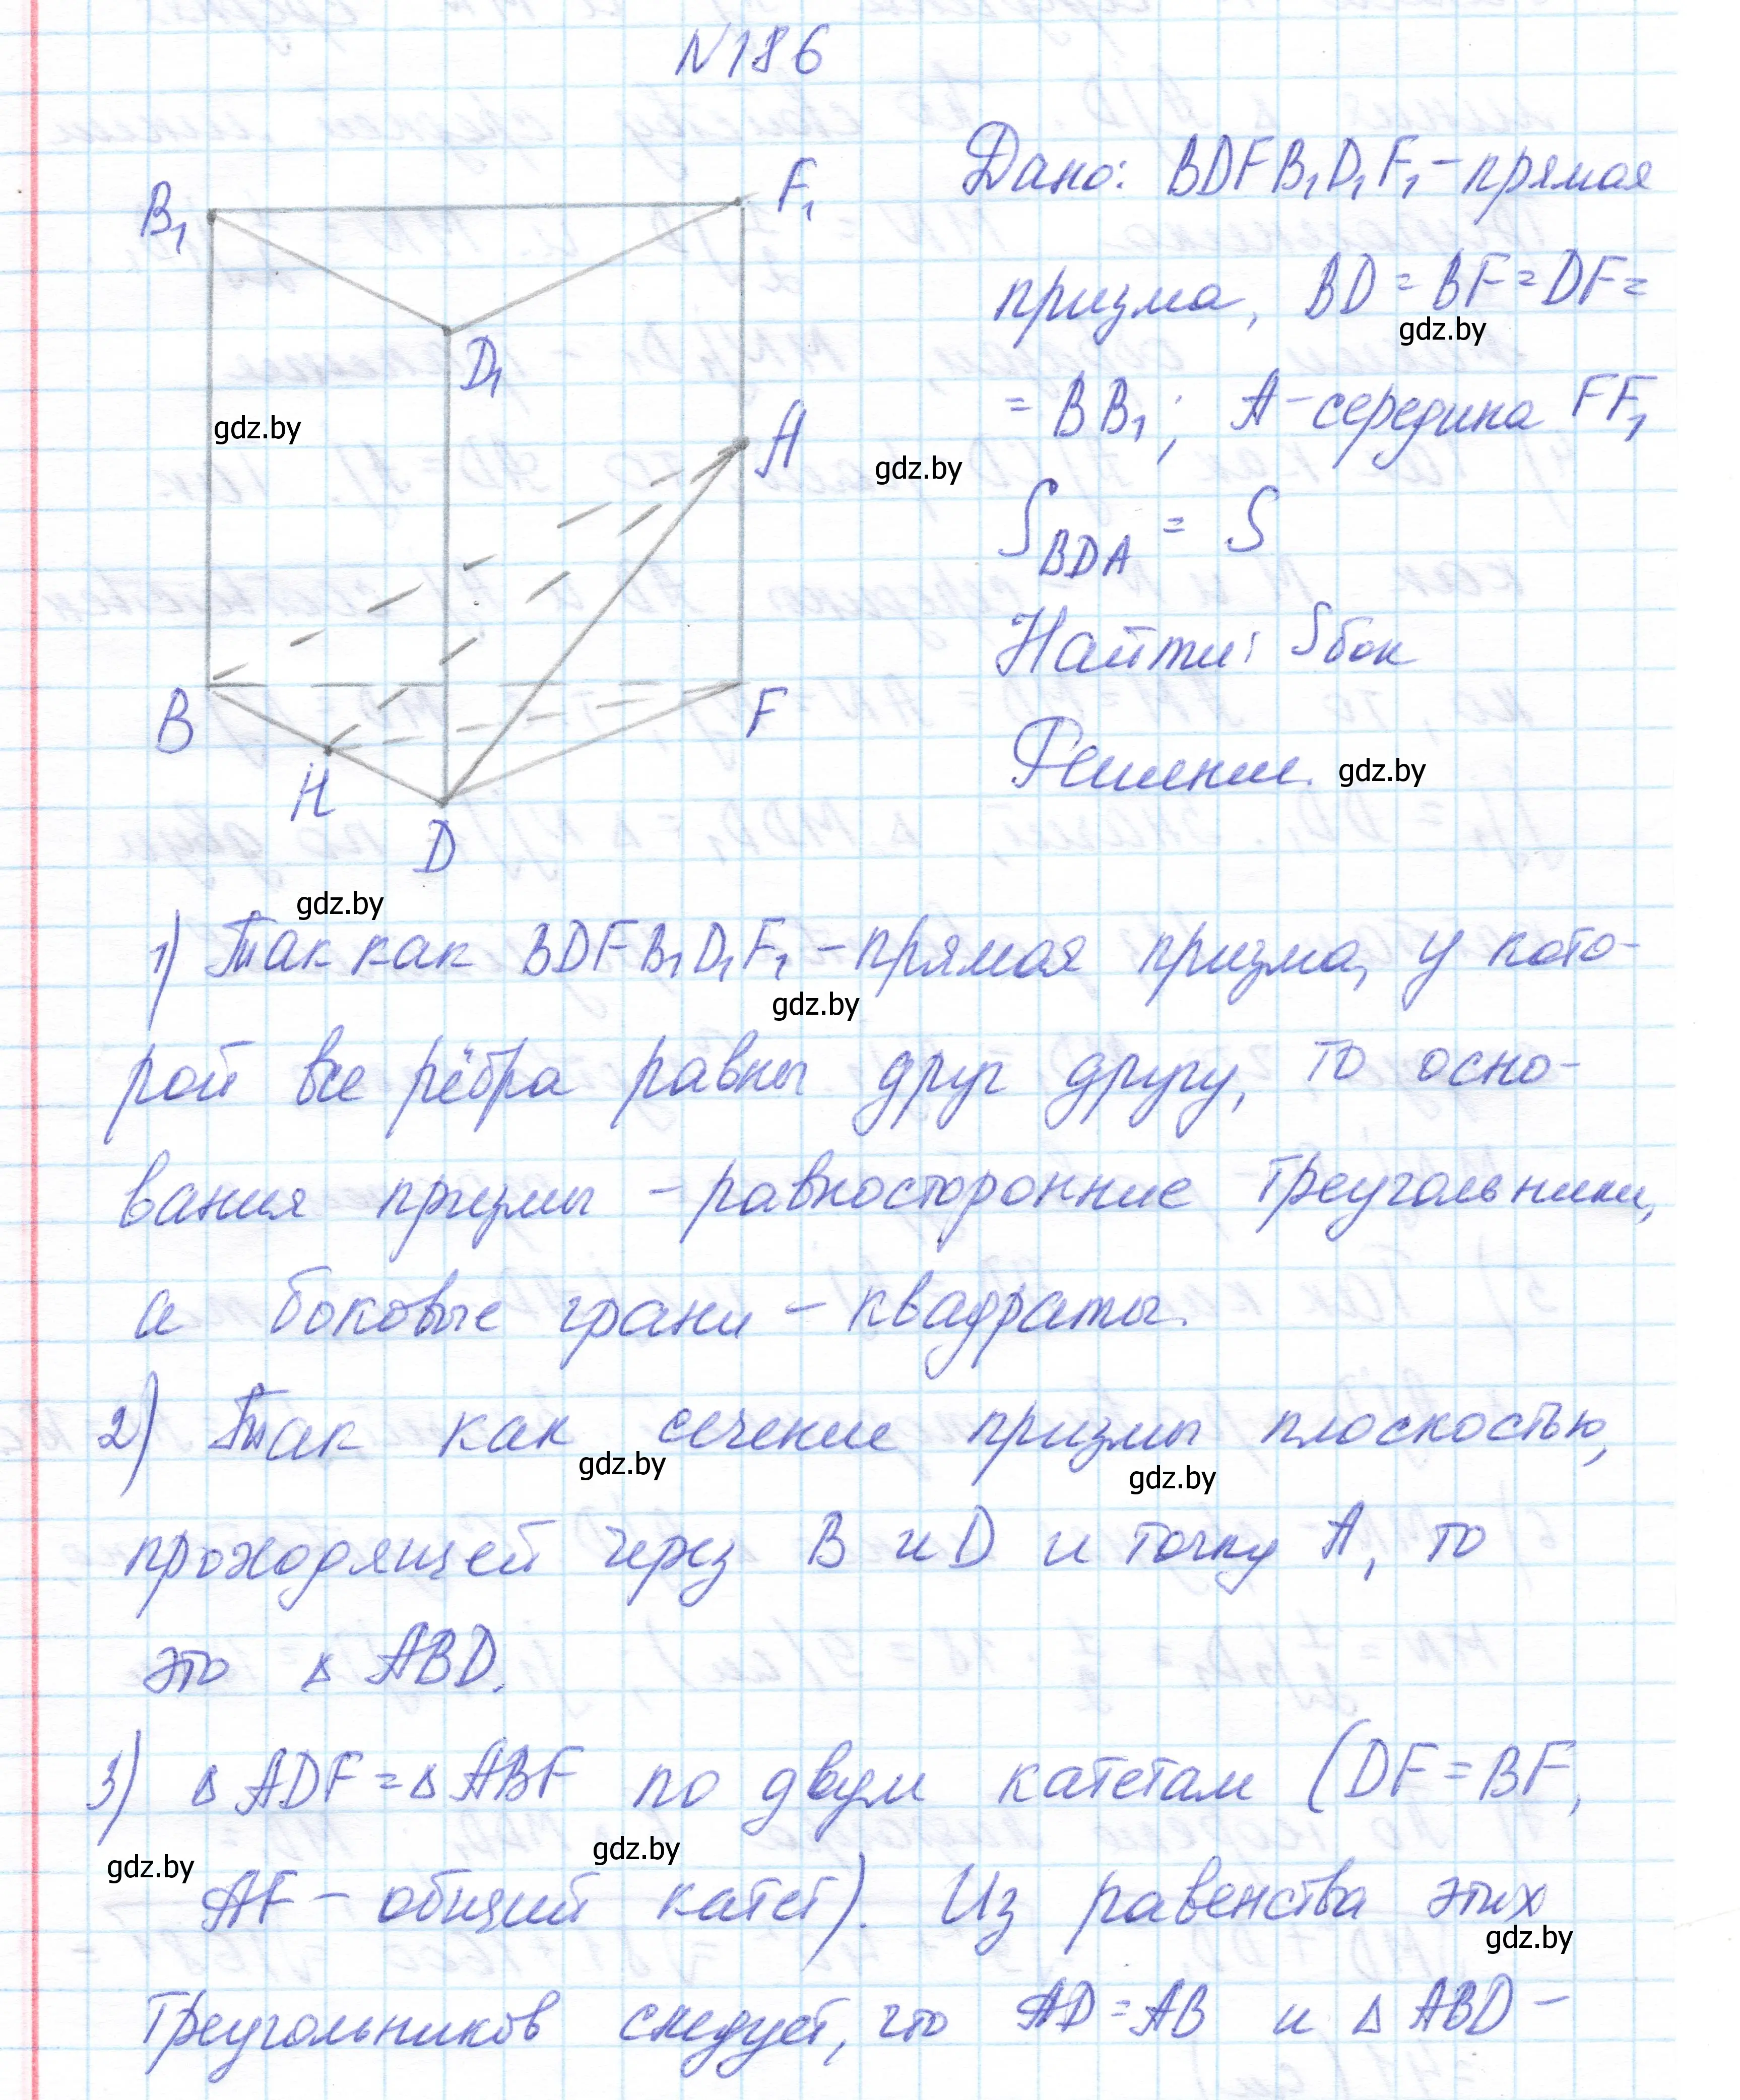 N186
B₁
F₁
D₁
A
B
F
H
D
Дано: BDFB₁D₁F₁ - прямая
призма, BD = BF = DF =
= BB₁; A - середина FF₁
S_BDA = S
Найти: Sбок
Решение.
1) Так как BDFB₁D₁F₁ - прямая призма, у кото-
рой все рёбра равны друг другу, то осно-
вания призмы - равносторонние треугольники,
а боковые грани - квадраты.
2) Так как сечение призмы плоскостью,
проходящей через B и D и точку A, то
это Δ ABD.
3) Δ ADF = Δ ABF по двум катетам (DF = BF,
AF - общий катет). Из равенства этих
треугольников следует, что AD = AB и Δ ABD -
gdz.by
gdz.by
gdz.by
gdz.by
gdz.by
gdz.by
gdz.by
gdz.by
gdz.by
gdz.by
gdz.by